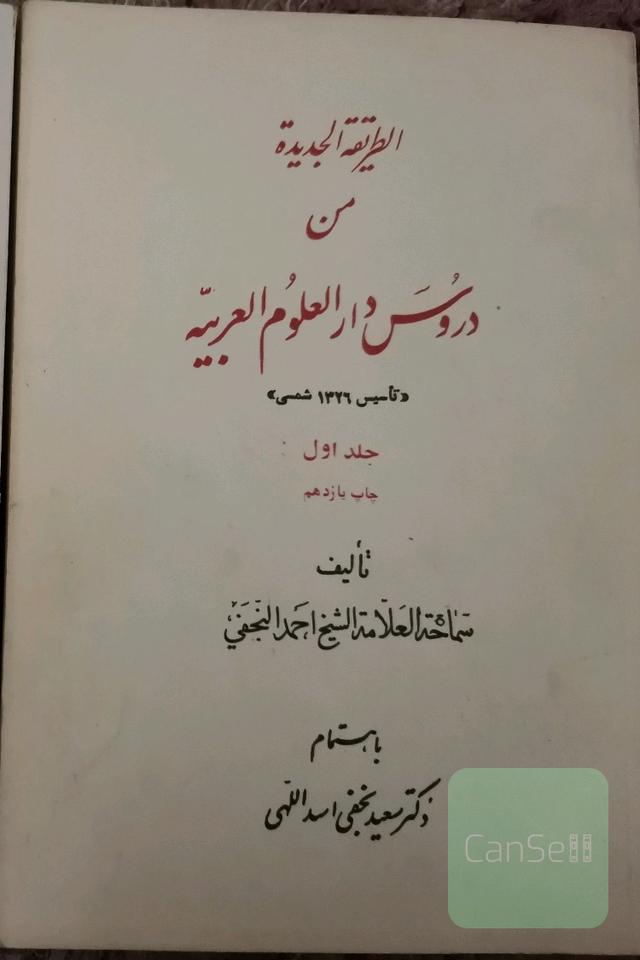 الطريقة الجديدة
من
دروُسَ دار العلوُم العربيّه
«تأسیس ۱۳۲۶ شمسی»
جلد اول
چاپ یازدهم
تأليف
سَمٰاحَة العَلّامة الشيخ احمد النّجفي
باهتمام
دکتر سعید نجفی اسداللهی
CanSell